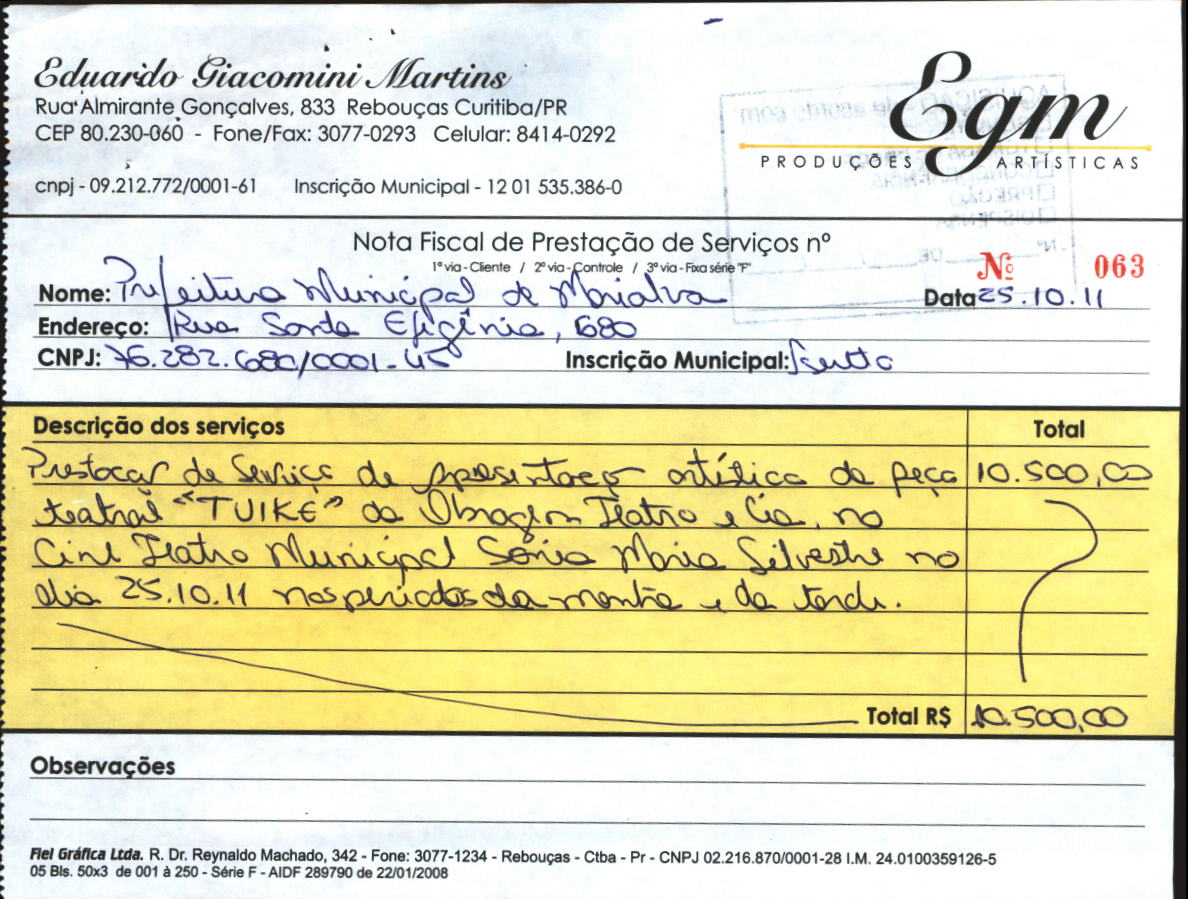 Eduardo Giacomini Martins
Rua Almirante Gonçalves, 833 Rebouças Curitiba/PR
CEP 80.230-060 - Fone/Fax: 3077-0293 Celular: 8414-0292
cnpj - 09.212.772/0001-61 Inscrição Municipal - 12 01 535.386-0
Egm
PRODUÇÕES ARTÍSTICAS
Nota Fiscal de Prestação de Serviços nº
1ª via - Cliente / 2ª via - Controle / 3ª via - Fixa série "F"
Nº 063
Nome: Prefeitura Municipal de Marialva Data 25.10.11
Endereço: Rua Santa Efigênia, 680
CNPJ: 76.282.680/0001-45 Inscrição Municipal: Isento
Descrição dos serviços Total
Prestação de Serviço de apresentação artística da peça 10.500,00
teatral "TUIKE" da Obragem Teatro e Cia, no
Cine Teatro Municipal Sonia Maria Silvestre no
dia 25.10.11 nos períodos da manhã e da tarde.
Total R$ 10.500,00
Observações
Fiel Gráfica Ltda. R. Dr. Reynaldo Machado, 342 - Fone: 3077-1234 - Rebouças - Ctba - Pr - CNPJ 02.216.870/0001-28 I.M. 24.0100359126-5
05 Bls. 50x3 de 001 à 250 - Série F - AIDF 289790 de 22/01/2008